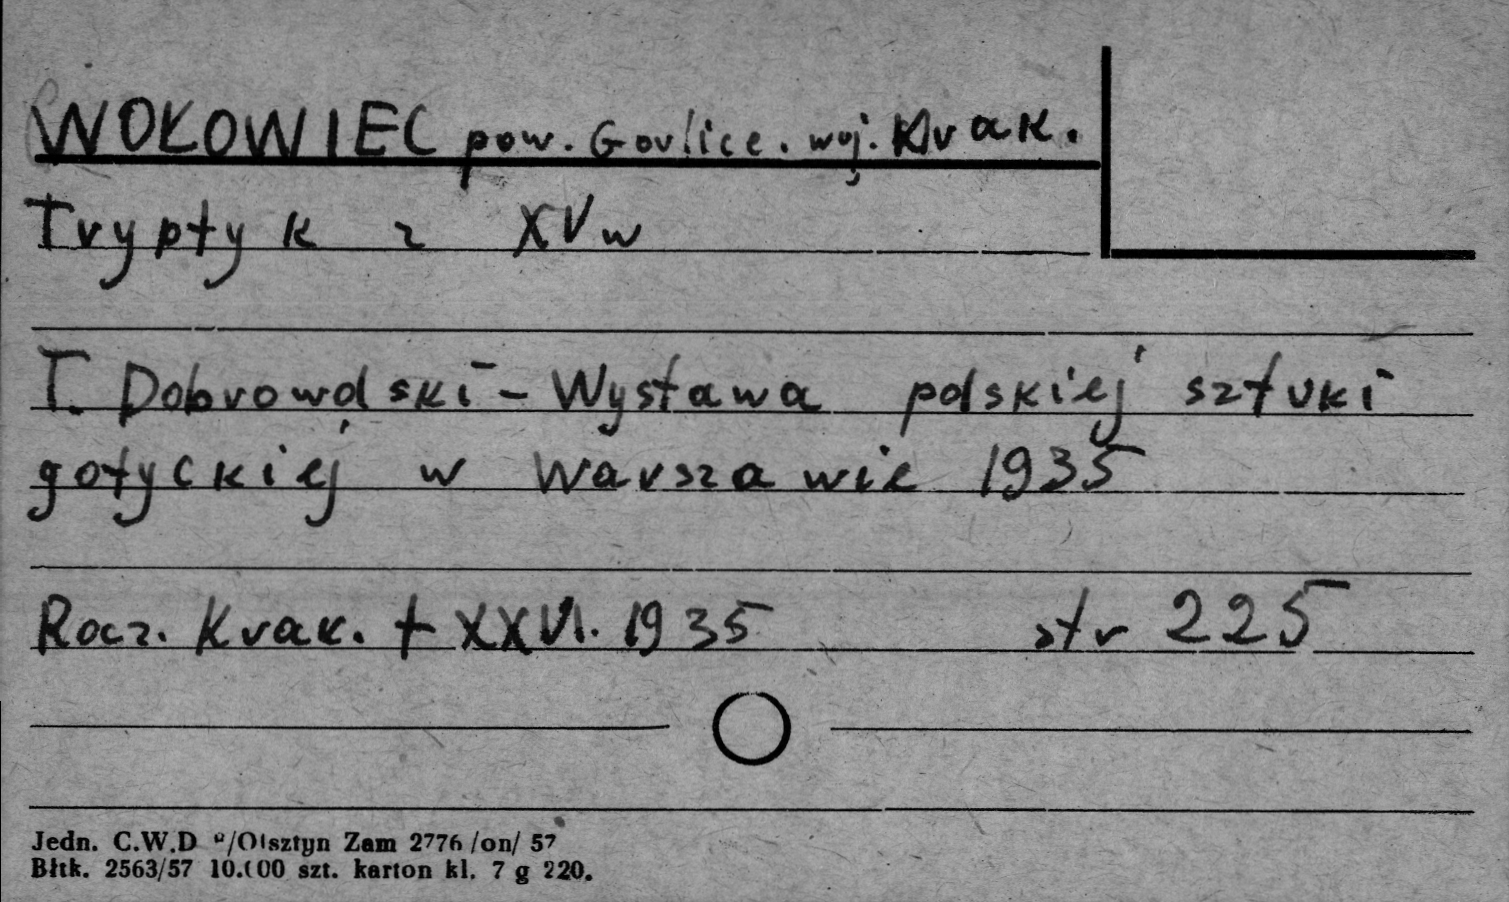 WOŁOWIEC pow. Gorlice. woj. Krak.
Tryptyk z XV w
T. Dobrowolski - Wystawa polskiej sztuki
gotyckiej w Warszawie 1935
Rocz. Krak. t XXVI. 1935 str 225
Jedn. C.W.D °/Olsztyn Zam 2776 /on/ 57
Błtk. 2563/57 10.000 szt. karton kl. 7 g 220.